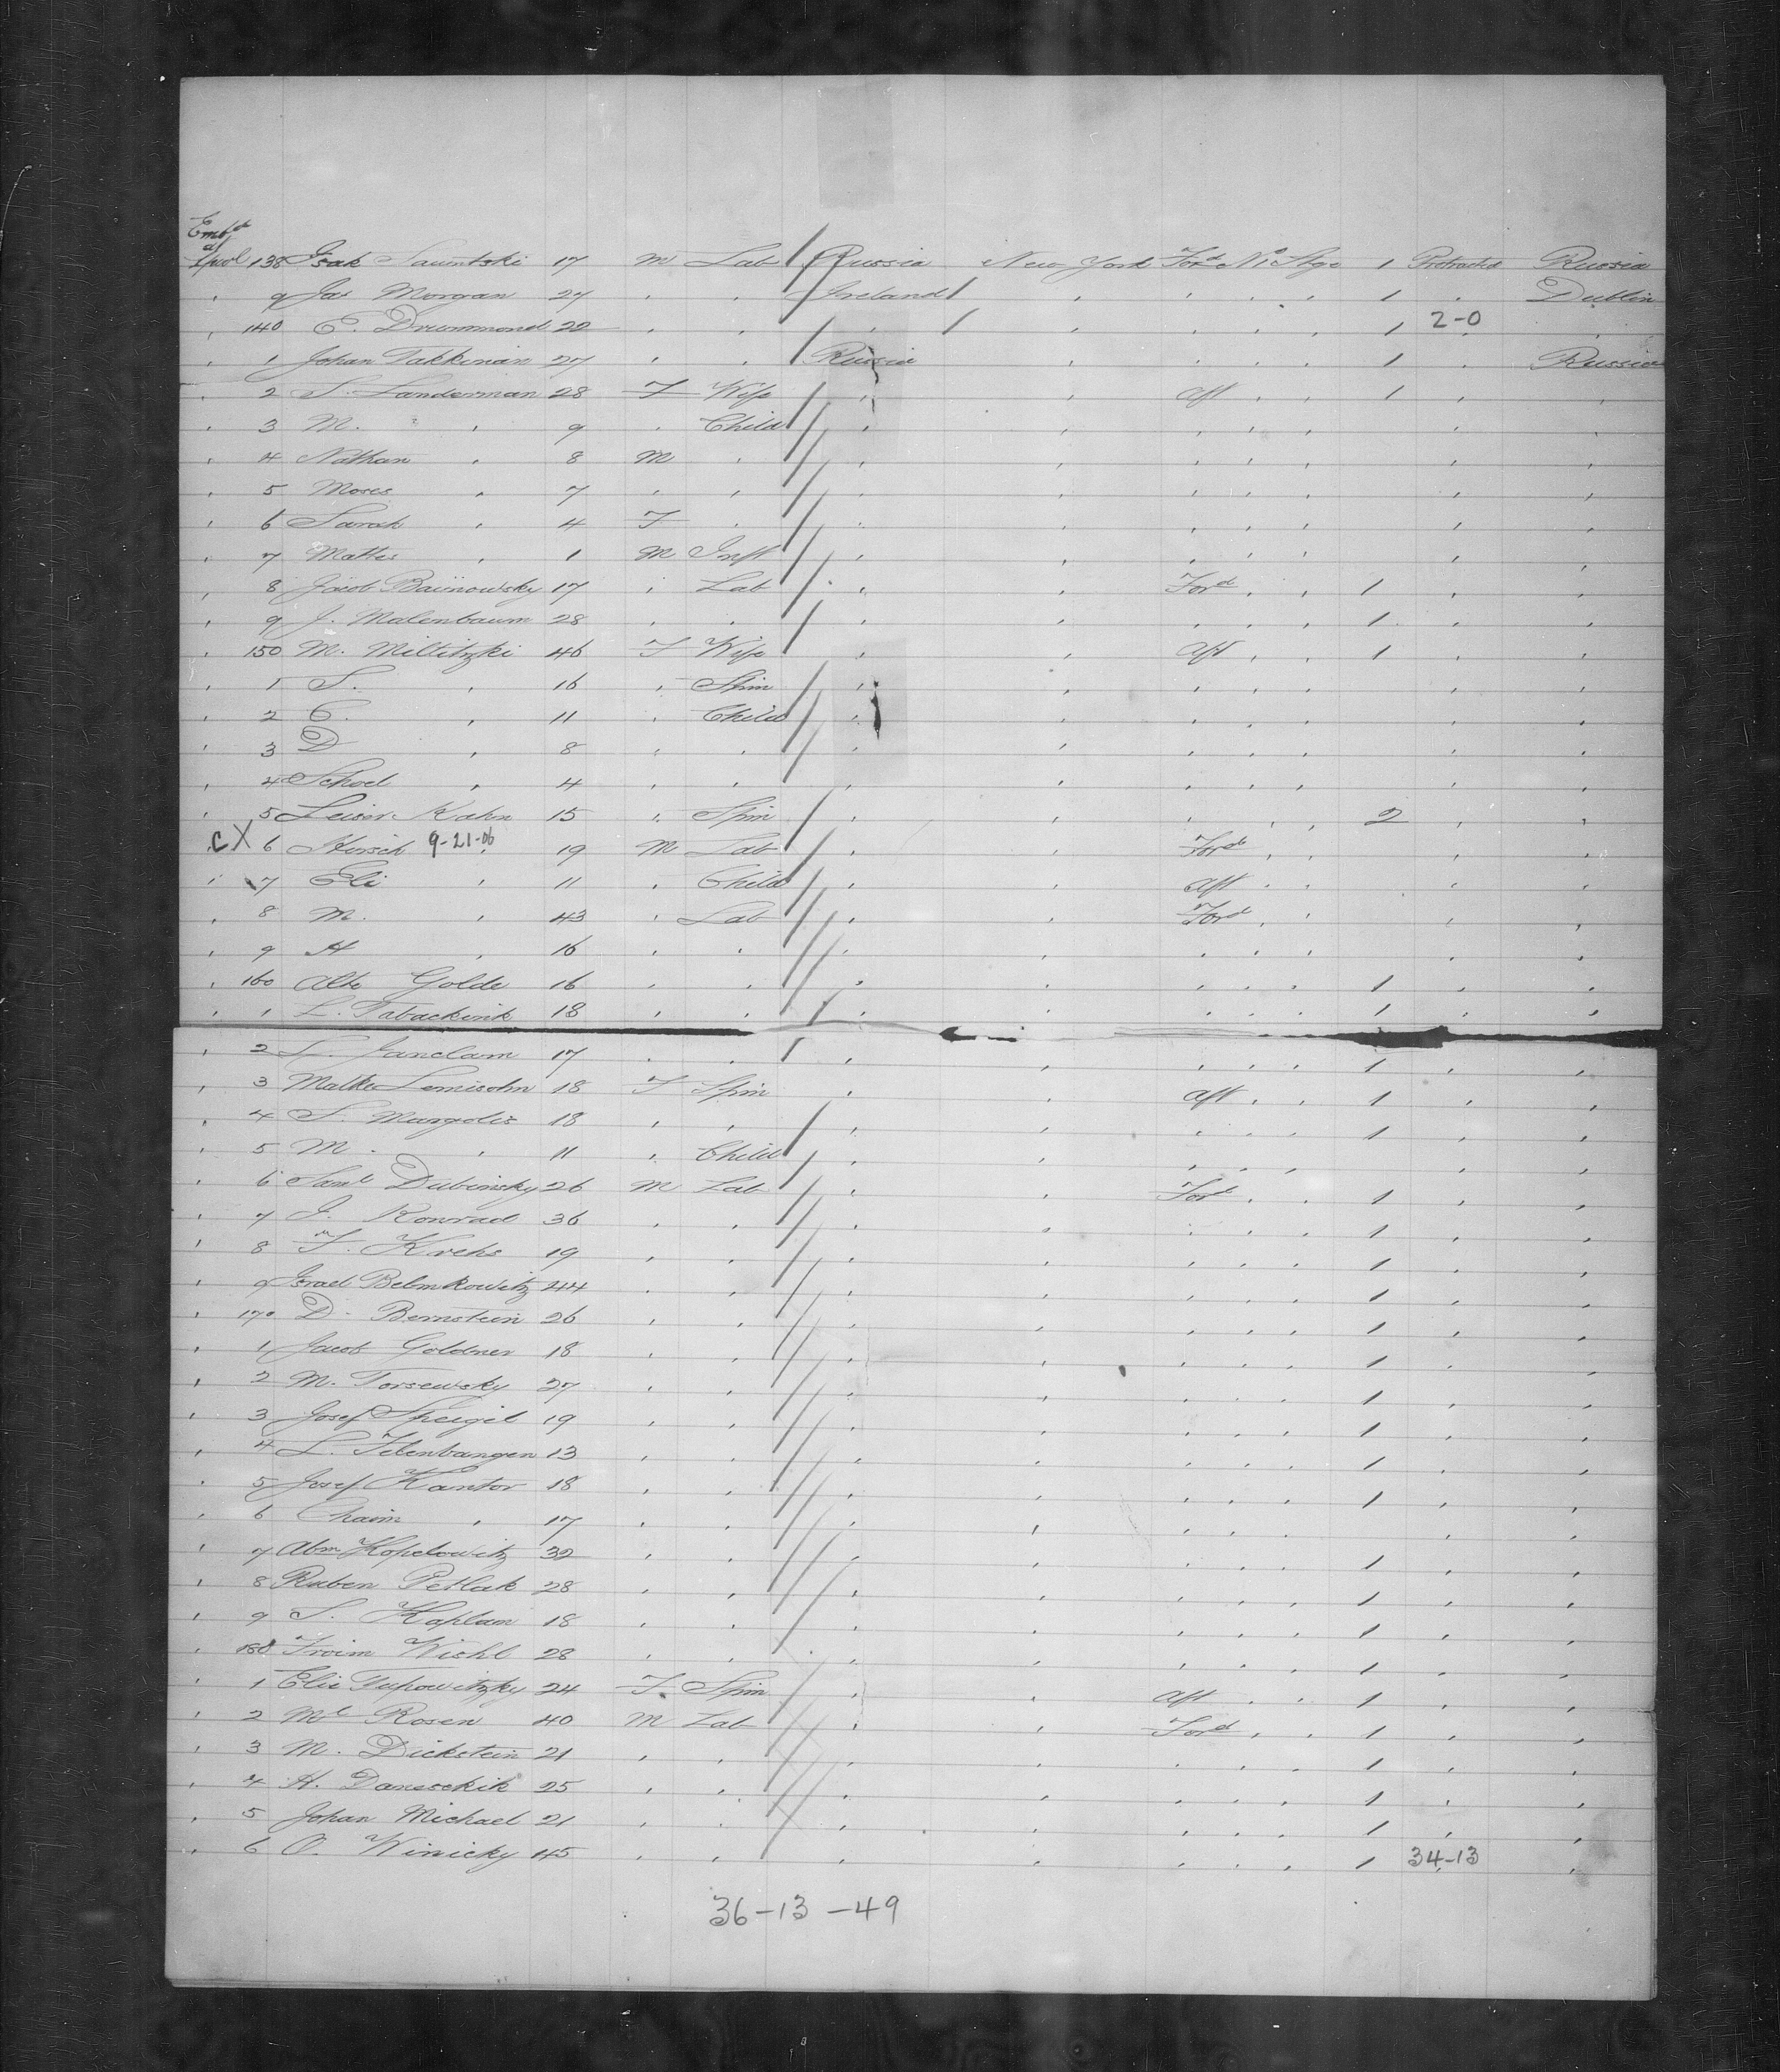 Embd
at
Lpool 138 Isak Sawntski 17 M Lab Russia New York Ford Nº Stge 1 Protracted Russia
" 9 Jas Morgan 27 " " Ireland " " " " 1 " Dublin
" 140 E. Drummond 22 " " " " " " " 1 2-0 "
" 1 Johan Takkinan 27 " " Russia " " " " 1 " Russia
" 2 S. Landerman 28 F Wife " " Aft " " 1 " "
" 3 M. " 9 " Child " " " " " " "
" 4 Nathan " 8 M " " " " " " " "
" 5 Moses " 7 " " " " " " " " "
" 6 Sarah " 4 F " " " " " " " "
" 7 Mattes " 1 M Inft " " " " " " "
" 8 Jacob Bainowsky 17 " Lab " " Ford " " 1 " "
" 9 J. Malenbaum 28 " " " " " " " 1 " "
" 150 M. Miltitzki 46 F Wife " " Aft " " 1 " "
" 1 S. " 16 " Spin " " " " " " "
" 2 C. " 11 " Child " " " " " " "
" 3 D " 8 " " " " " " " " "
" 4 Schoel " 4 " " " " " " " " "
" 5 Leiser Kahn 15 " Spin " " " " " 2 " "
CX 6 Hirsch 9-21-06 " 19 M Lab " " Ford " " " "
" 7 Eli " 11 " Child " " Aft " " " "
" 8 M. " 43 " Lab " " Ford " " " "
" 9 H " 16 " " " " " " " " "
" 160 Alte Golde 16 " " " " " " " 1 " "
" 1 L. Tabackink 18 " " " " " " " 1 " "
" 2 L. Janclam 17 " " " " " " " 1 " "
" 3 Malke Lemisohn 18 F Spin " " Aft " " 1 " "
" 4 S. Margolis 18 " " " " " " " 1 " "
" 5 M. " 11 " Child " " " " " " "
" 6 Saml Dubinsky 26 M Lab " " Ford " " 1 " "
" 7 J. Konrad 36 " " " " " " " 1 " "
" 8 F. Krehs 19 " " " " " " " 1 " "
" 9 Israel Belmkowitz 44 " " " " " " " 1 " "
" 170 D. Bernstein 26 " " " " " " " 1 " "
" 1 Jacob Goldner 18 " " " " " " " 1 " "
" 2 M. Torsewsky 27 " " " " " " " 1 " "
" 3 Josef Speigel 19 " " " " " " " 1 " "
" 4 L. Felenbangen 13 " " " " " " " 1 " "
" 5 Josef Kantor 18 " " " " " " " 1 " "
" 6 Chaim " 17 " " " " " " " " "
" 7 Abm Kopelowitz 32 " " " " " " " 1 " "
" 8 Ruben Petlak 28 " " " " " " " 1 " "
" 9 S. Kaplam 18 " " " " " " " 1 " "
" 180 Froim Wichl 28 " " " " " " " 1 " "
" 1 Elie Tupowitzky 24 F Spin " " Aft " " 1 " "
" 2 Ml Rosen 40 M Lab " " Ford " " 1 " "
" 3 M. Dickstein 21 " " " " " " " 1 " "
" 4 H. Daneschik 25 " " " " " " " 1 " "
" 5 Johan Michael 21 " " " " " " " 1 " "
" 6 O. Winicky 45 " " " " " " " 1 34-13 "
36-13-49